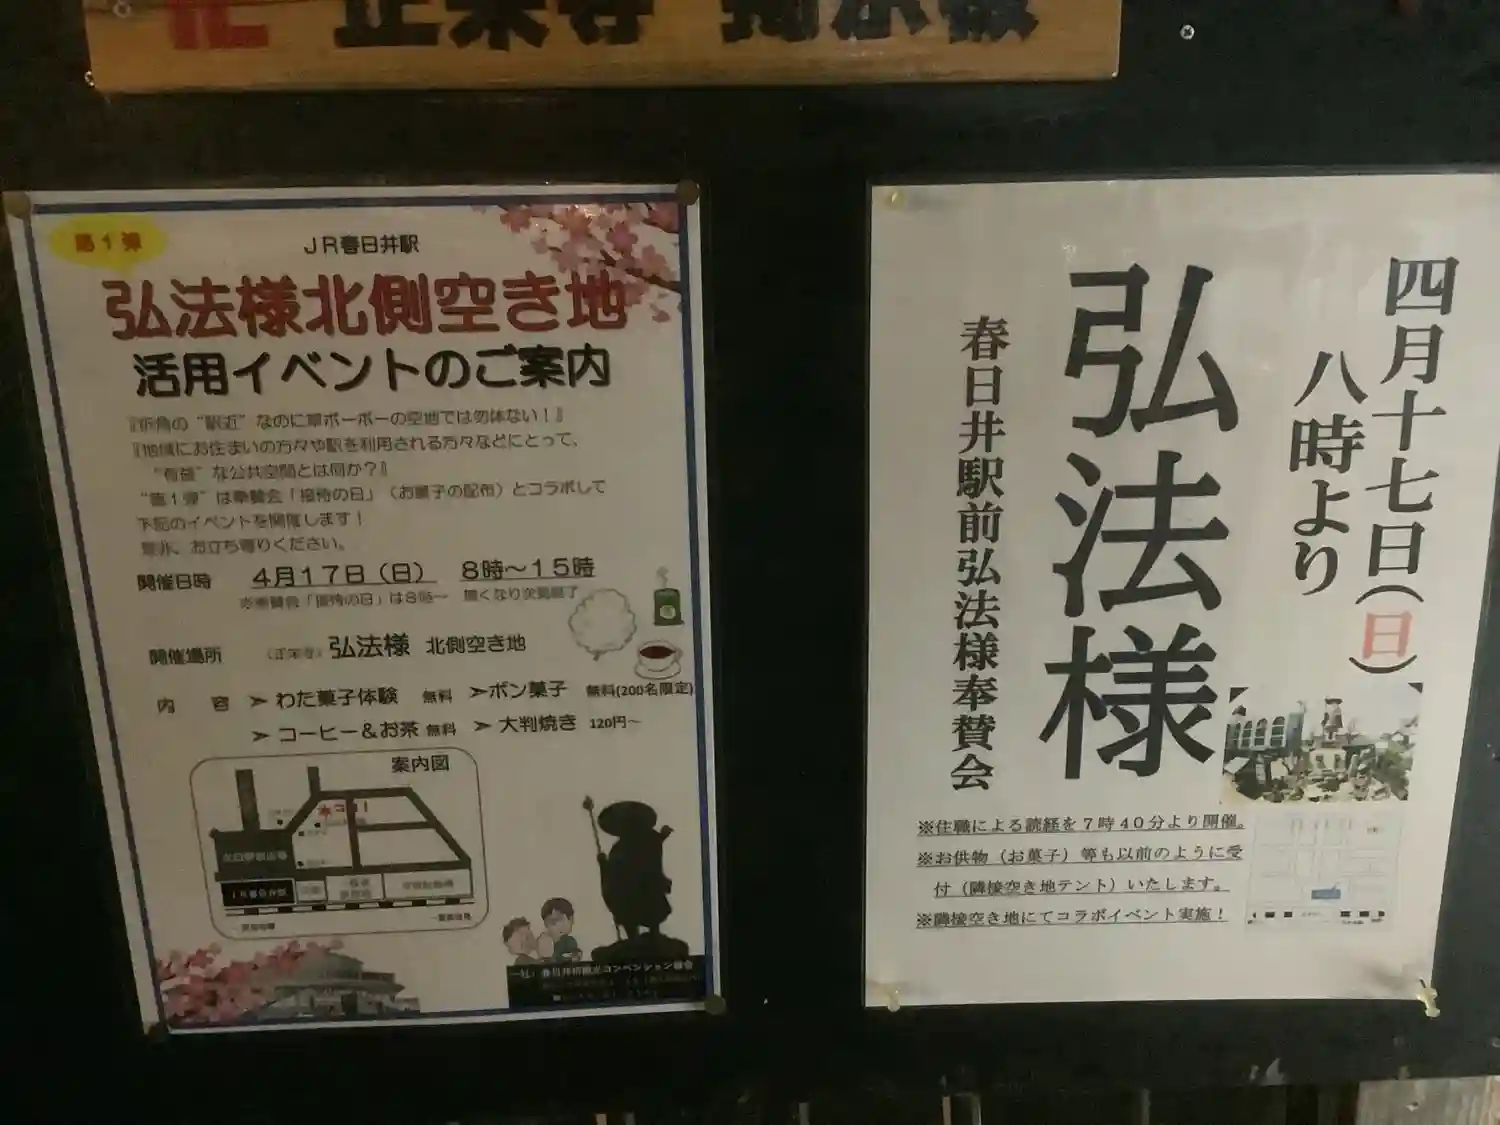 卍 正栄寺 掲示板
第1弾
JR春日井駅
弘法様北側空き地
活用イベントのご案内
『折角の“駅近”なのに草ボーボーの空地では勿体ない！』
『地域にお住まいの方々や駅を利用される方々などにとって、
“有益”な公共空間とは何か？』
“第1弾”は奉賛会「接待の日」（お菓子の配布）とコラボして
下記のイベントを開催します！
是非、お立ち寄りください。
開催日時 4月17日（日） 8時～15時
※奉賛会「接待の日」は8時～ 無くなり次第終了
開催場所 （正栄寺）弘法様 北側空き地
内容 ➢ わた菓子体験 無料 ➢ポン菓子 無料(200名限定)
➢ コーヒー＆お茶 無料 ➢ 大判焼き 120円～
案内図
ココ！
JR春日井駅
四月十七日(日)
八時より
弘法様
春日井駅前弘法様奉賛会
※住職による読経を7時40分より開催。
※お供物（お菓子）等も以前のように受
付（隣接空き地テント）いたします。
※隣接空き地にてコラボイベント実施！